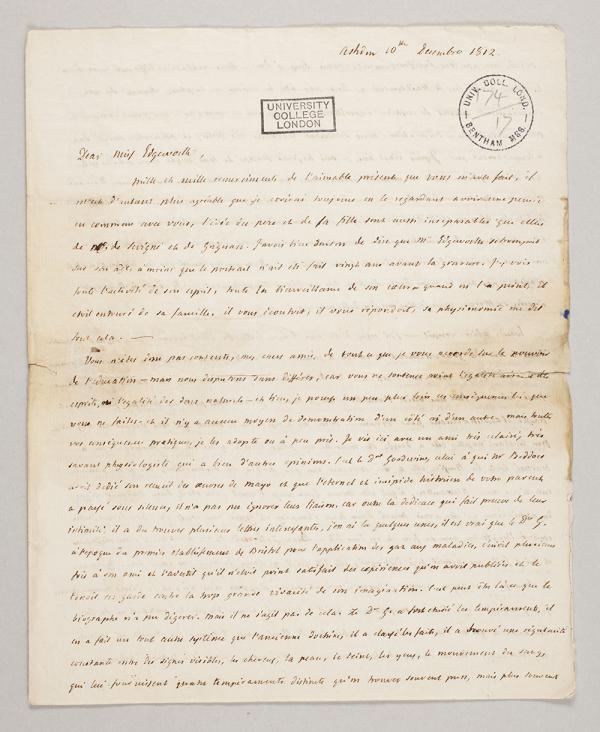 Ashdon 10th Decembre 1812
UNIV. COLL. LOND.
BENTHAM MSS.
174
17
UNIVERSITY
COLLEGE
LONDON
Dear Miss Edgeworth,
Mille et mille remerciments de l'aimable présente que vous m'avez fait, il
m'est d'autant plus agréable que je croirai toujours en le regardant avoir une pensée
en commun avec vous, l'idée du pere et de sa fille sont aussi inséparables que celles
de de Sevigné et de Grignan. J'avois bien raison de dire que Mr Edgeworth se trompoit
sur son age, à moins que le portrait n'ait été fait vingt ans avant la gravure. J'y vois
toute l'activité de son esprit, toute la bienveillance de son coeur quand on l'a peint, il
etoit entouré de sa famille. il vous écoutoit, il vous répondoit, sa physionomie me dit
tout cela. —
Vous n'êtes donc pas contente, mes chers amis, de tout ce que je vous accorde sur le pouvoir
de l'éducation — mais nous disputons sans différer, car vous ne soutenez point l'égalité
esprits, ou l'égalité des dons naturels — eh bien, je pousse un peu plus loin que
vous ne faites — et il n'y a aucun moyen de demonstration d'un côté ni d'un autre — mais toutes
vos conséquences pratiques, je les adopte ou à peu près. Je vis ici avec un ami très éclairé, très
savant physiologiste qui a bien d'autres opinions. C'est le Dr Goodwin, celui à qui Mr Beddoes
avoit dedié son recueil des œuvres de Mayo et que l'éternel et insipide historien de votre parent
a passé sous silence, il n'a pas pu ignorer leur liaison. car outre la dedicace qui fait preuve de leur
intimité, il a du trouver plusieurs lettres interessantes, j'en ai lu quelques unes, il est vrai que le Dr G.
à l'epoque du premier etablissement de Bristol pour l'application des gaz aux maladies, écrivit plusieurs
fois à son ami et l'avertit qu'il n'etoit point satisfait des expériences qu'on avoit publiées et le
tenoit en garde contre la trop grande vivacité de son imagination. C'est peut être là ce que le
biographe n'a pu digerer. mais il ne s'agit pas de cela. Le Dr G. a fort étudié les tempéraments, il
en a fait un tout autre système que l'ancienne doctrine, il a classé les faits, il a trouvé une régularité
constante entre des signes visibles, les cheveux, la peau, le teint, les yeux, le mouvement du sang,
qui lui fournissent quatre tempéraments distincts qu'on trouve souvent purs, mais plus souvent